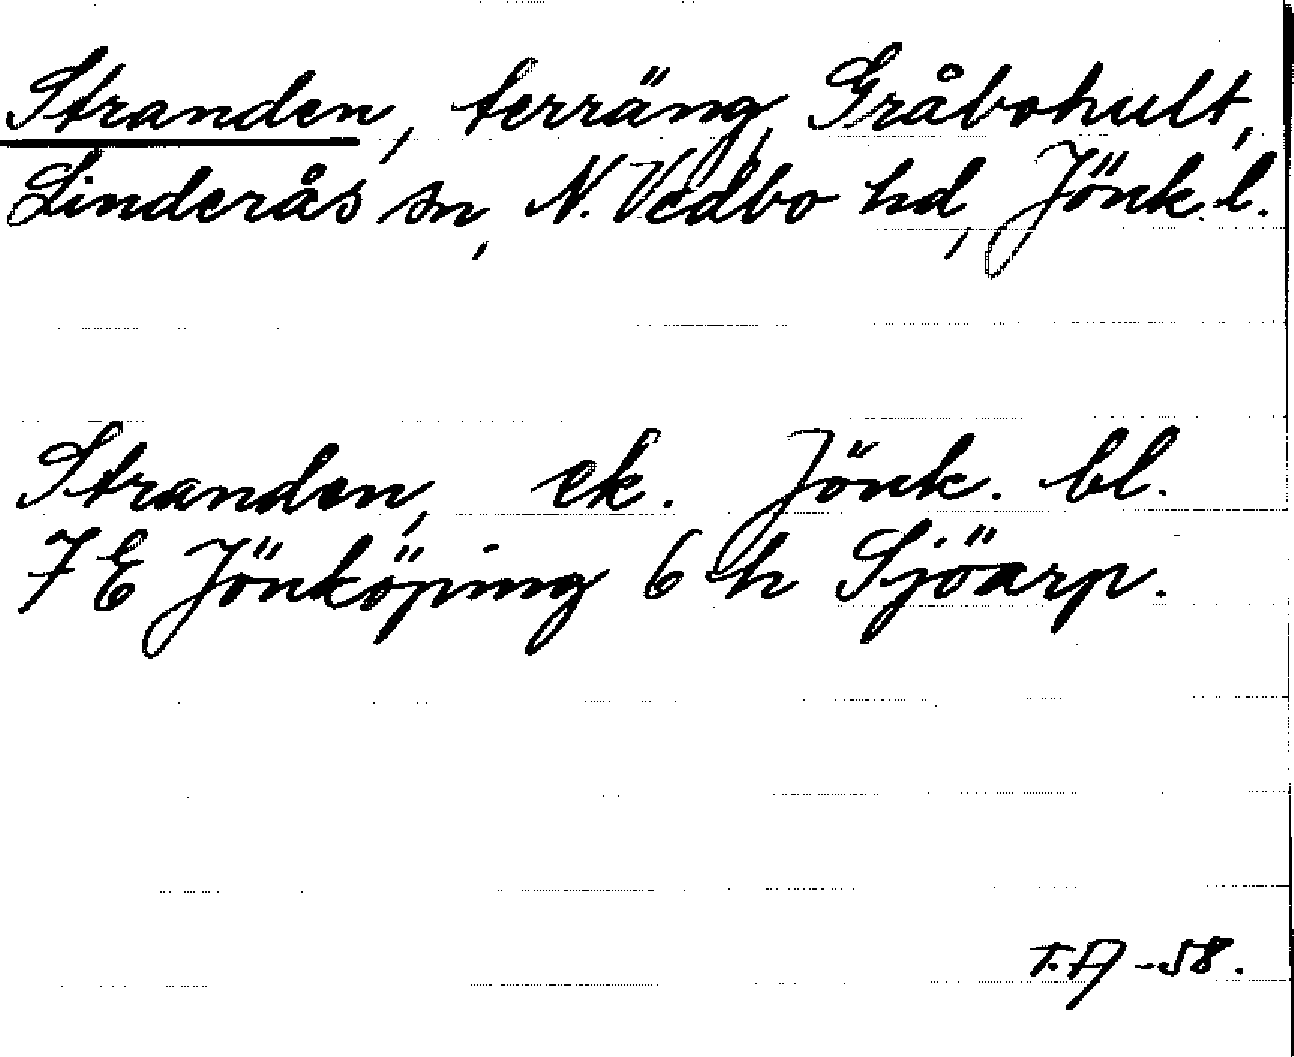 Stranden, terräng, Gråbohult,
Linderås sn, N. Vedbo hd, Jönk. l.
Stranden, ek. Jönk. bl.
7 E Jönköping 6 h Sjöarp.
T.A -58.